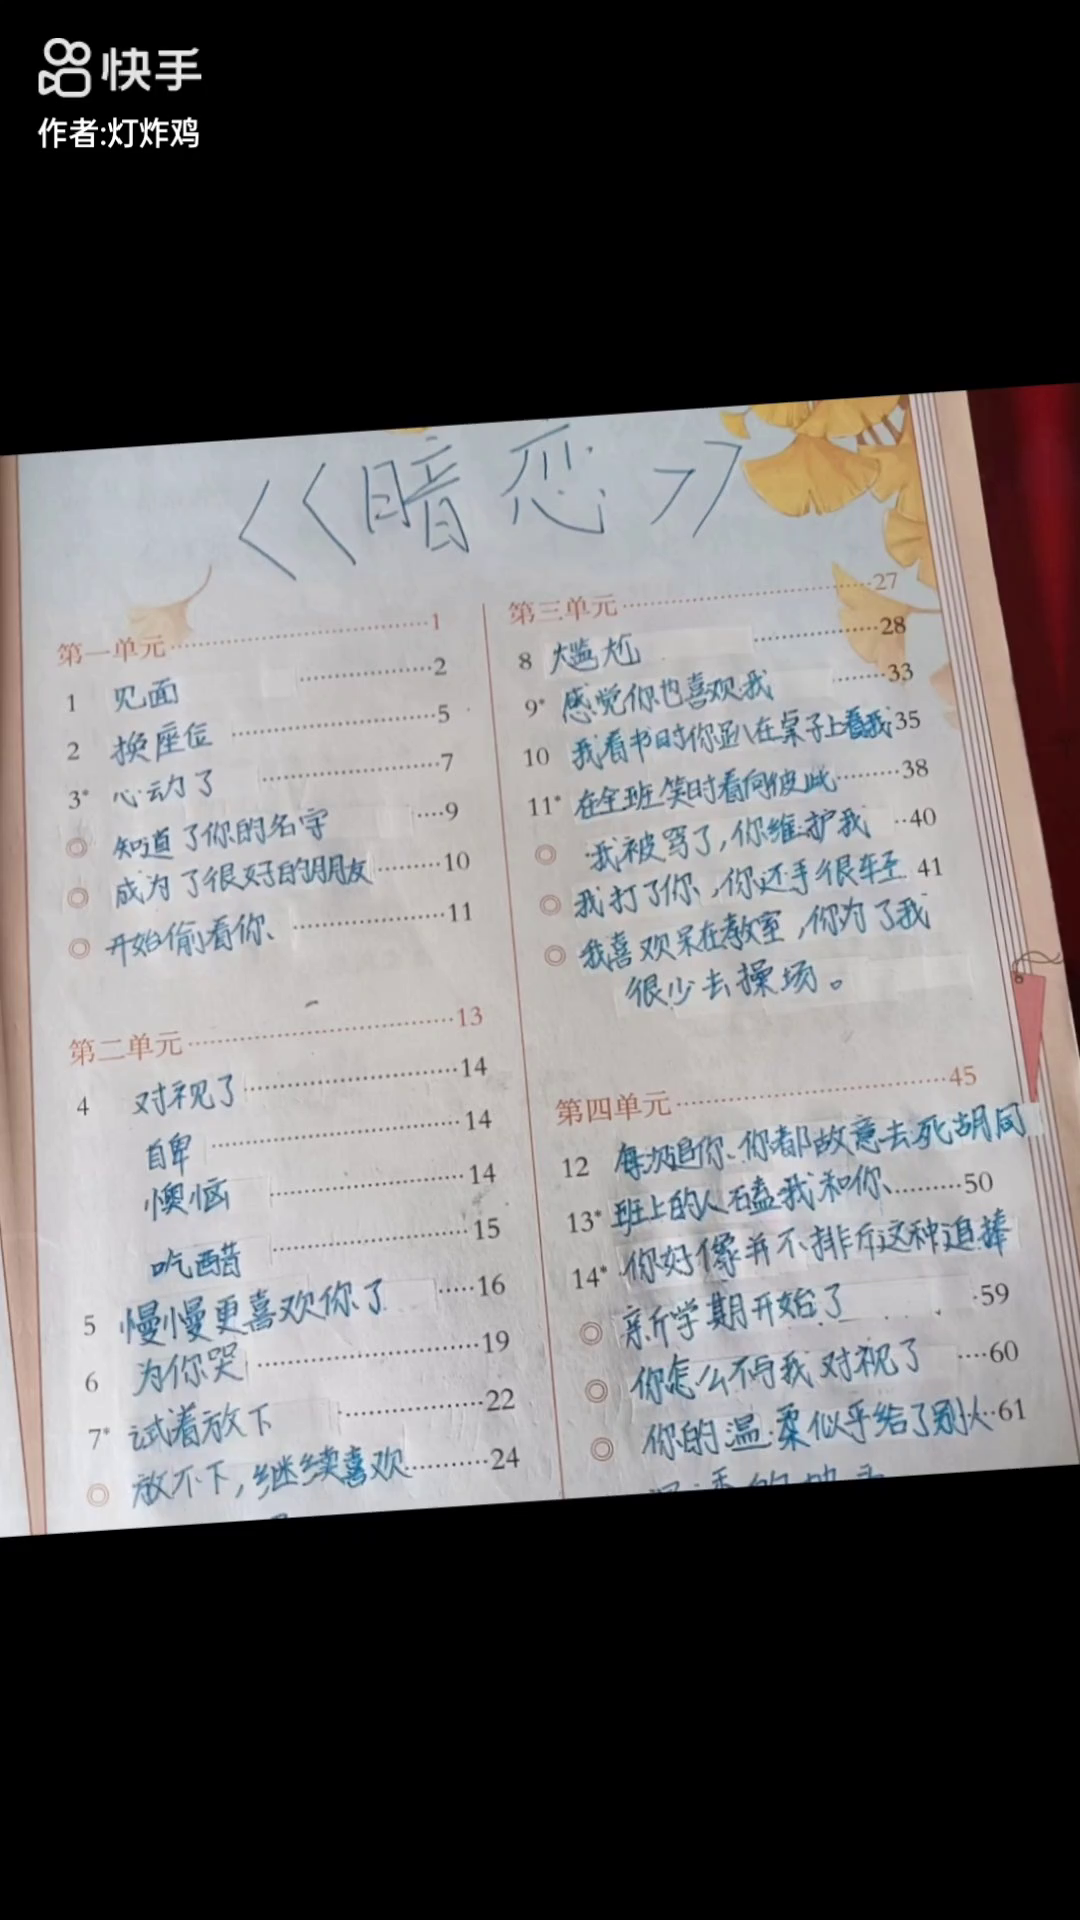 快手
作者:灯炸鸡
《暗恋》
第一单元 1
1 见面 2
2 换座位 5
3* 心动了 7
◎ 知道了你的名字 9
◎ 成为了很好的朋友 10
◎ 开始偷看你 11
第二单元 13
4 对视了 14
自卑 14
懊恼 14
吃醋 15
5 慢慢更喜欢你了 16
6 为你哭 19
7* 试着放下 22
◎ 放不下,继续喜欢 24
第三单元 27
8 尴尬 28
9* 感觉你也喜欢我 33
10 我看书时你趴在桌子上看我 35
11* 在全班笑时看向彼此 38
◎ 我被骂了,你维护我 40
◎ 我打了你,你还手很轻 41
◎ 我喜欢呆在教室,你为了我
很少去操场。
第四单元 45
12 每次追你、你都故意去死胡同
13* 班上的人磕我和你 50
14* 你好像并不排斥这种追捧
◎ 新学期开始了 59
◎ 你怎么不与我对视了 60
◎ 你的温柔似乎给了别人 61